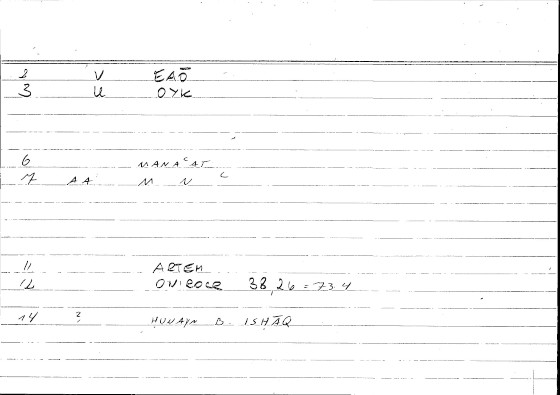 2 V ΕΑŌ
3 U ΟΥΚ
6 MANAʿAT
7 AA M N ʿ
11 ARTEM
12 ONIROCR 38,26 = 73 4
14 ? HUNAYN B. ISHĀQ